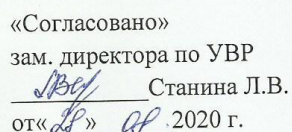 «Согласовано»
зам. директора по УВР
Станина Л.В.
от«28» 08 2020 г.